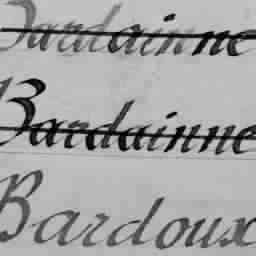 Bardainne
Bardainne
Bardoux